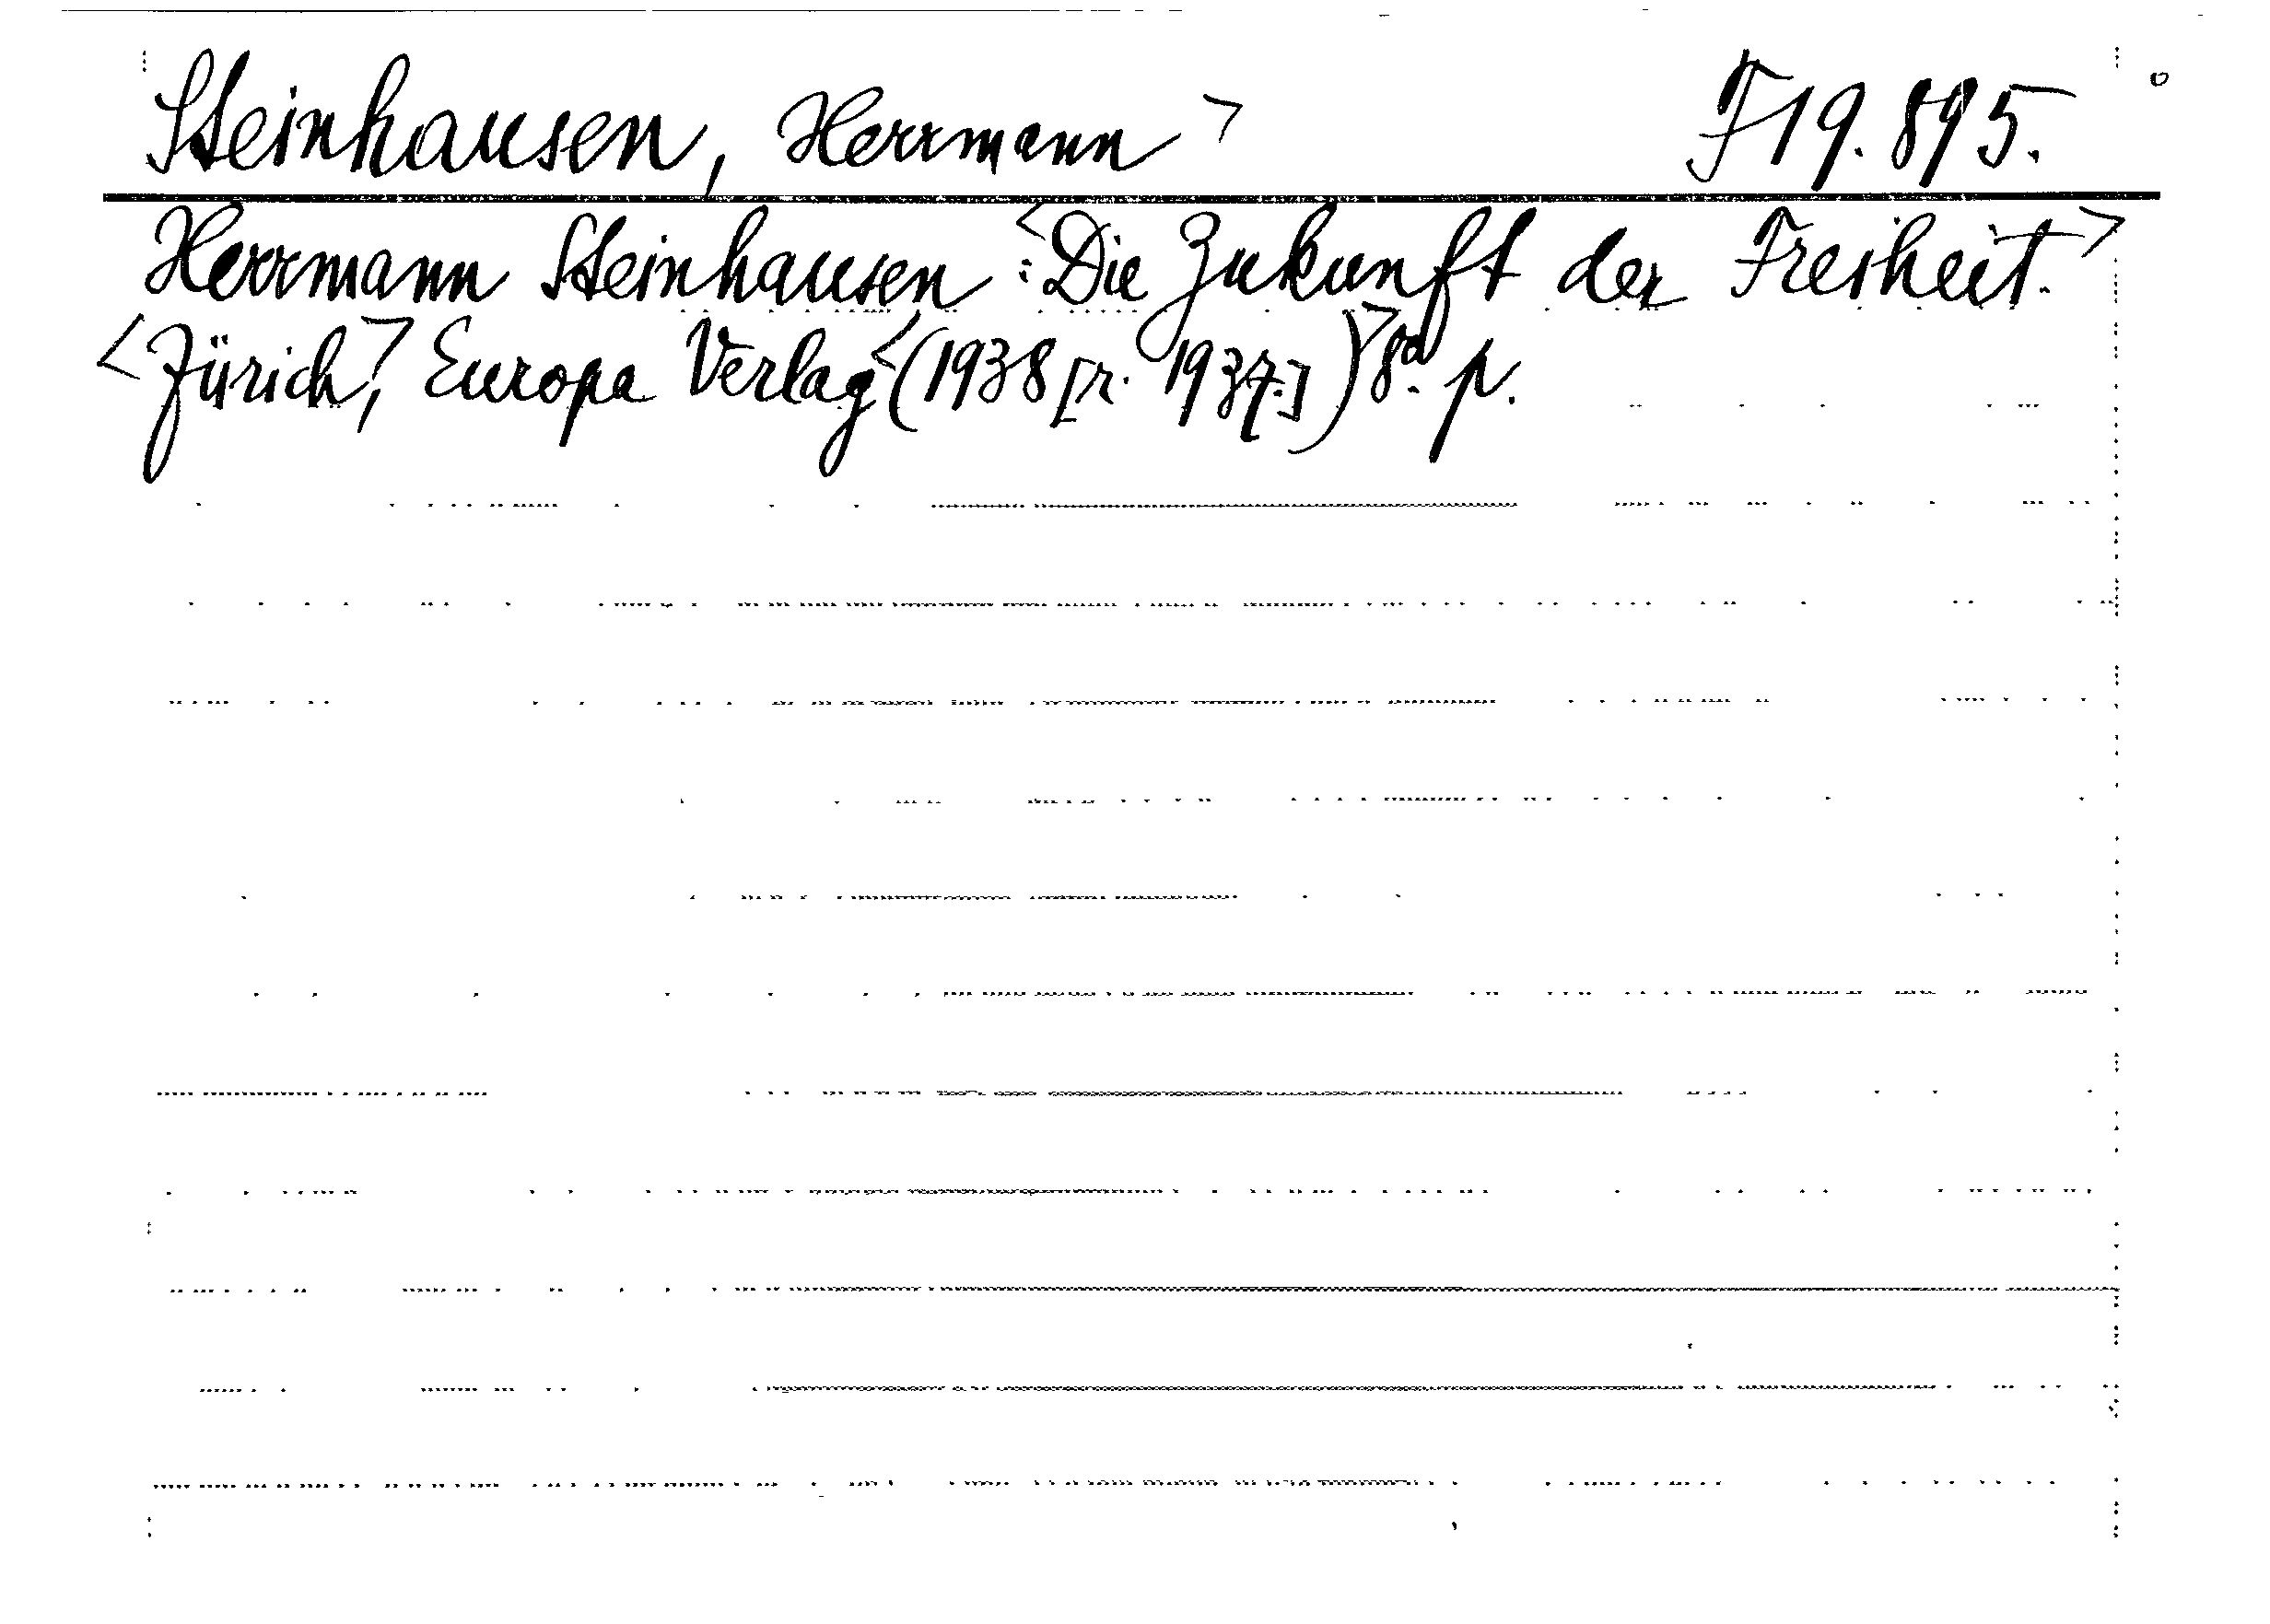 Steinhausen, Herrmann > F 19.895.
Herrmann Steinhausen : <Die Zukunft der Freiheit.>
<Zürich,> Europa Verlag <(1938 [r. 1937.])> 8° p.